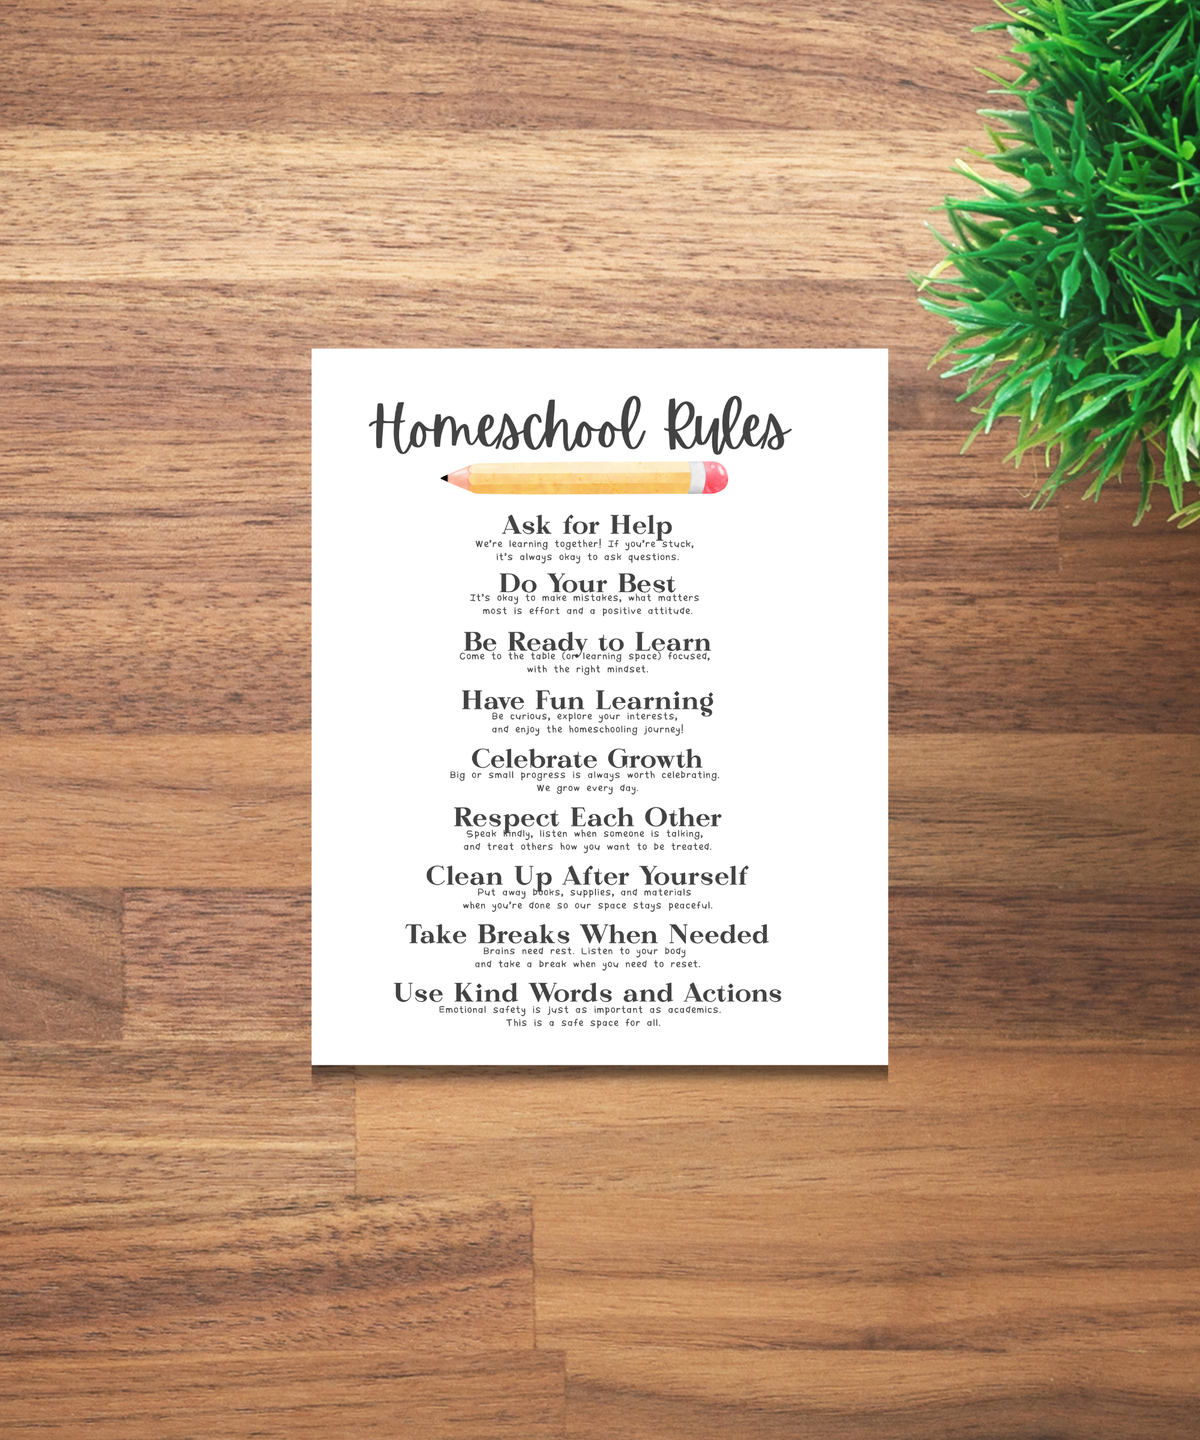 Homeschool Rules
Ask for Help
We're learning together! If you're stuck,
it's always okay to ask questions.
Do Your Best
It's okay to make mistakes, what matters
most is effort and a positive attitude.
Be Ready to Learn
Come to the table (or learning space) focused,
with the right mindset.
Have Fun Learning
Be curious, explore your interests,
and enjoy the homeschooling journey!
Celebrate Growth
Big or small progress is always worth celebrating.
We grow every day.
Respect Each Other
Speak kindly, listen when someone is talking,
and treat others how you want to be treated.
Clean Up After Yourself
Put away books, supplies, and materials
when you're done so our space stays peaceful.
Take Breaks When Needed
Brains need rest. Listen to your body
and take a break when you need to reset.
Use Kind Words and Actions
Emotional safety is just as important as academics.
This is a safe space for all.